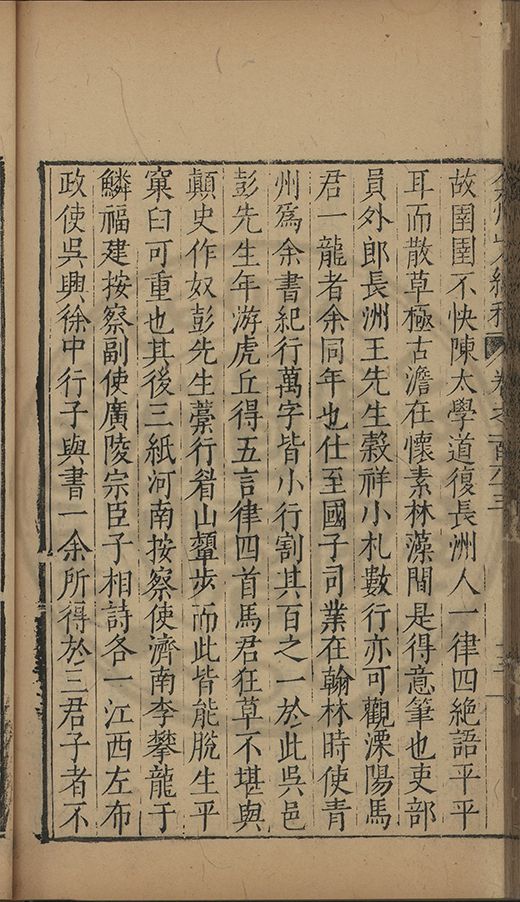 故圉圉不快陳太學道復長洲人一律四絶語平平
耳而散草極古澹在懷素林藻間是得意筆也吏部
員外郎長洲王先生榖祥小札數行亦可觀溧陽馬
君一龍者余同年也仕至國子司業在翰林時使青
州爲余書紀行萬字皆小行割其百之一於此吳邑
彭先生年游虎丘得五言律四首馬君狂草不堪與
顛史作奴彭先生藁行眉山蠻步而此皆能脫生平
窠臼可重也其後三紙河南按察使濟南李攀龍于
鱗福建按察副使廣陵宗臣子相詩各一江西左布
政使吳興徐中行子與書一余所得於三君子者不